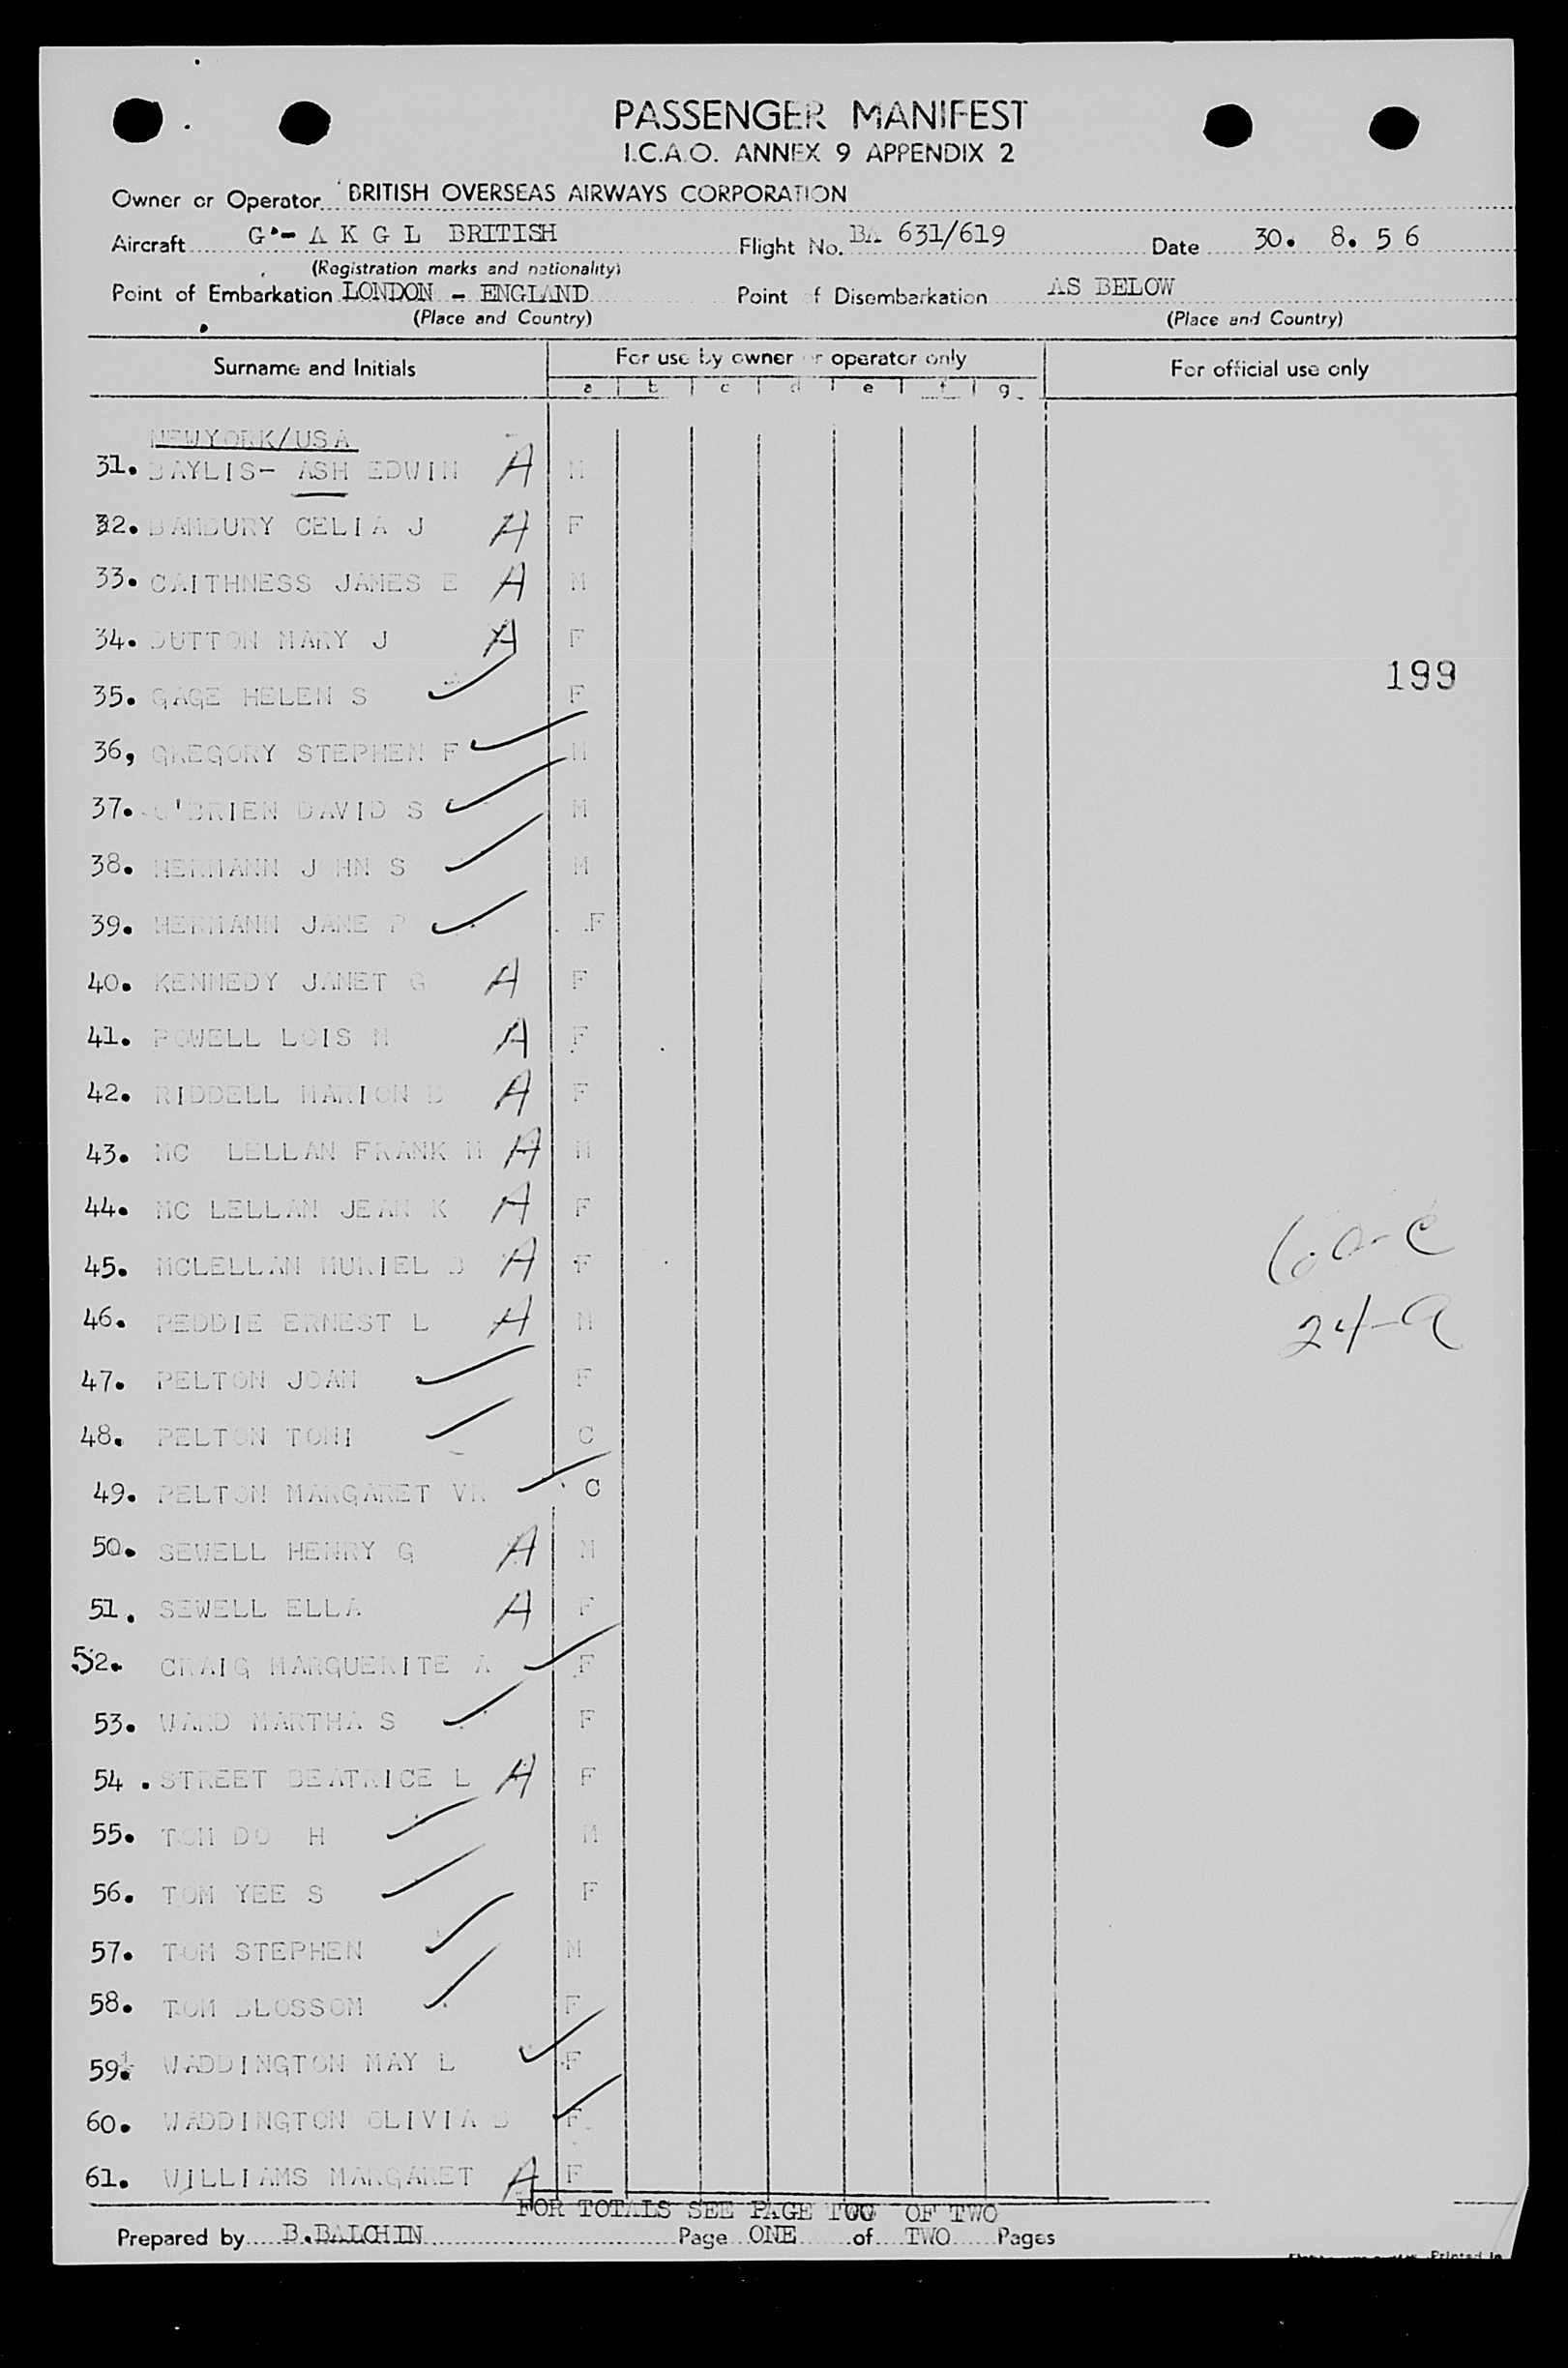 PASSENGER MANIFEST
I.C.A.O. ANNEX 9 APPENDIX 2
Owner or Operator BRITISH OVERSEAS AIRWAYS CORPORATION
Aircraft G - A K G L BRITISH Flight No. BA 631/619 Date 30. 8. 5 6
(Registration marks and nationality)
Point of Embarkation LONDON - ENGLAND Point of Disembarkation AS BELOW
(Place and Country) (Place and Country)
Surname and Initials For use by owner or operator only For official use only
a b c d e f g
NEWYORK/USA
31. BAYLIS- ASH EDWIN A M
32. BAMBURY CELIA J A F
33. CAITHNESS JAMES E A M
34. DUTTON MARY J A F
199
35. GAGE HELEN S ✓ F
36, GREGORY STEPHEN F ✓ M
37. O'BRIEN DAVID S ✓ M
38. HERMANN J HN S ✓ M
39. HERMANN JANE P ✓ F
40. KENNEDY JANET G A F
41. POWELL LOIS M A F
42. RIDDELL MARION B A F
43. MC LELLAN FRANK M A M
44. MC LELLAN JEAN K A F
45. MCLELLAN MURIEL B A F
46. PEDDIE ERNEST L A M
24-a
47. PELTON JOAN ✓ F
48. PELTON TONI ✓ C
49. PELTON MARGARET VR ✓ C
50. SEWELL HENRY G A M
51. SEWELL ELLA A F
52. CRAIG MARGUERITE A ✓ F
53. WARD MARTHA S ✓ F
54 . STREET BEATRICE L A F
55. TOM DO H ✓ M
56. TOM YEE S ✓ F
57. TOM STEPHEN ✓ M
58. TOM BLOSSOM ✓ F
59. WADDINGTON MAY L ✓ F
60. WADDINGTON OLIVIA B ✓ F
61. WILLIAMS MARGARET A F
FOR TOTALS SEE PAGE TWO OF TWO
Prepared by B.BALCHIN Page ONE of TWO Pages